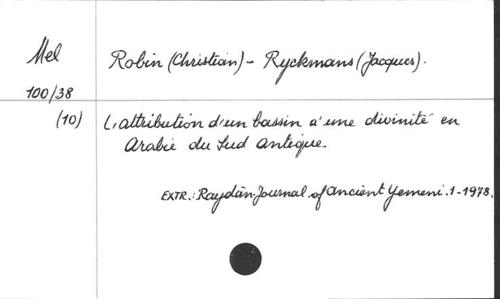 Mel
Robin (Christian) - Ryckmans (Jacques).
100/38
(10)
L'attribution d'un bassin a' une divinité en
Arabie du Sud antique.
EXTR.: Raydān. Journal of ancient Yemeni. 1-1978.